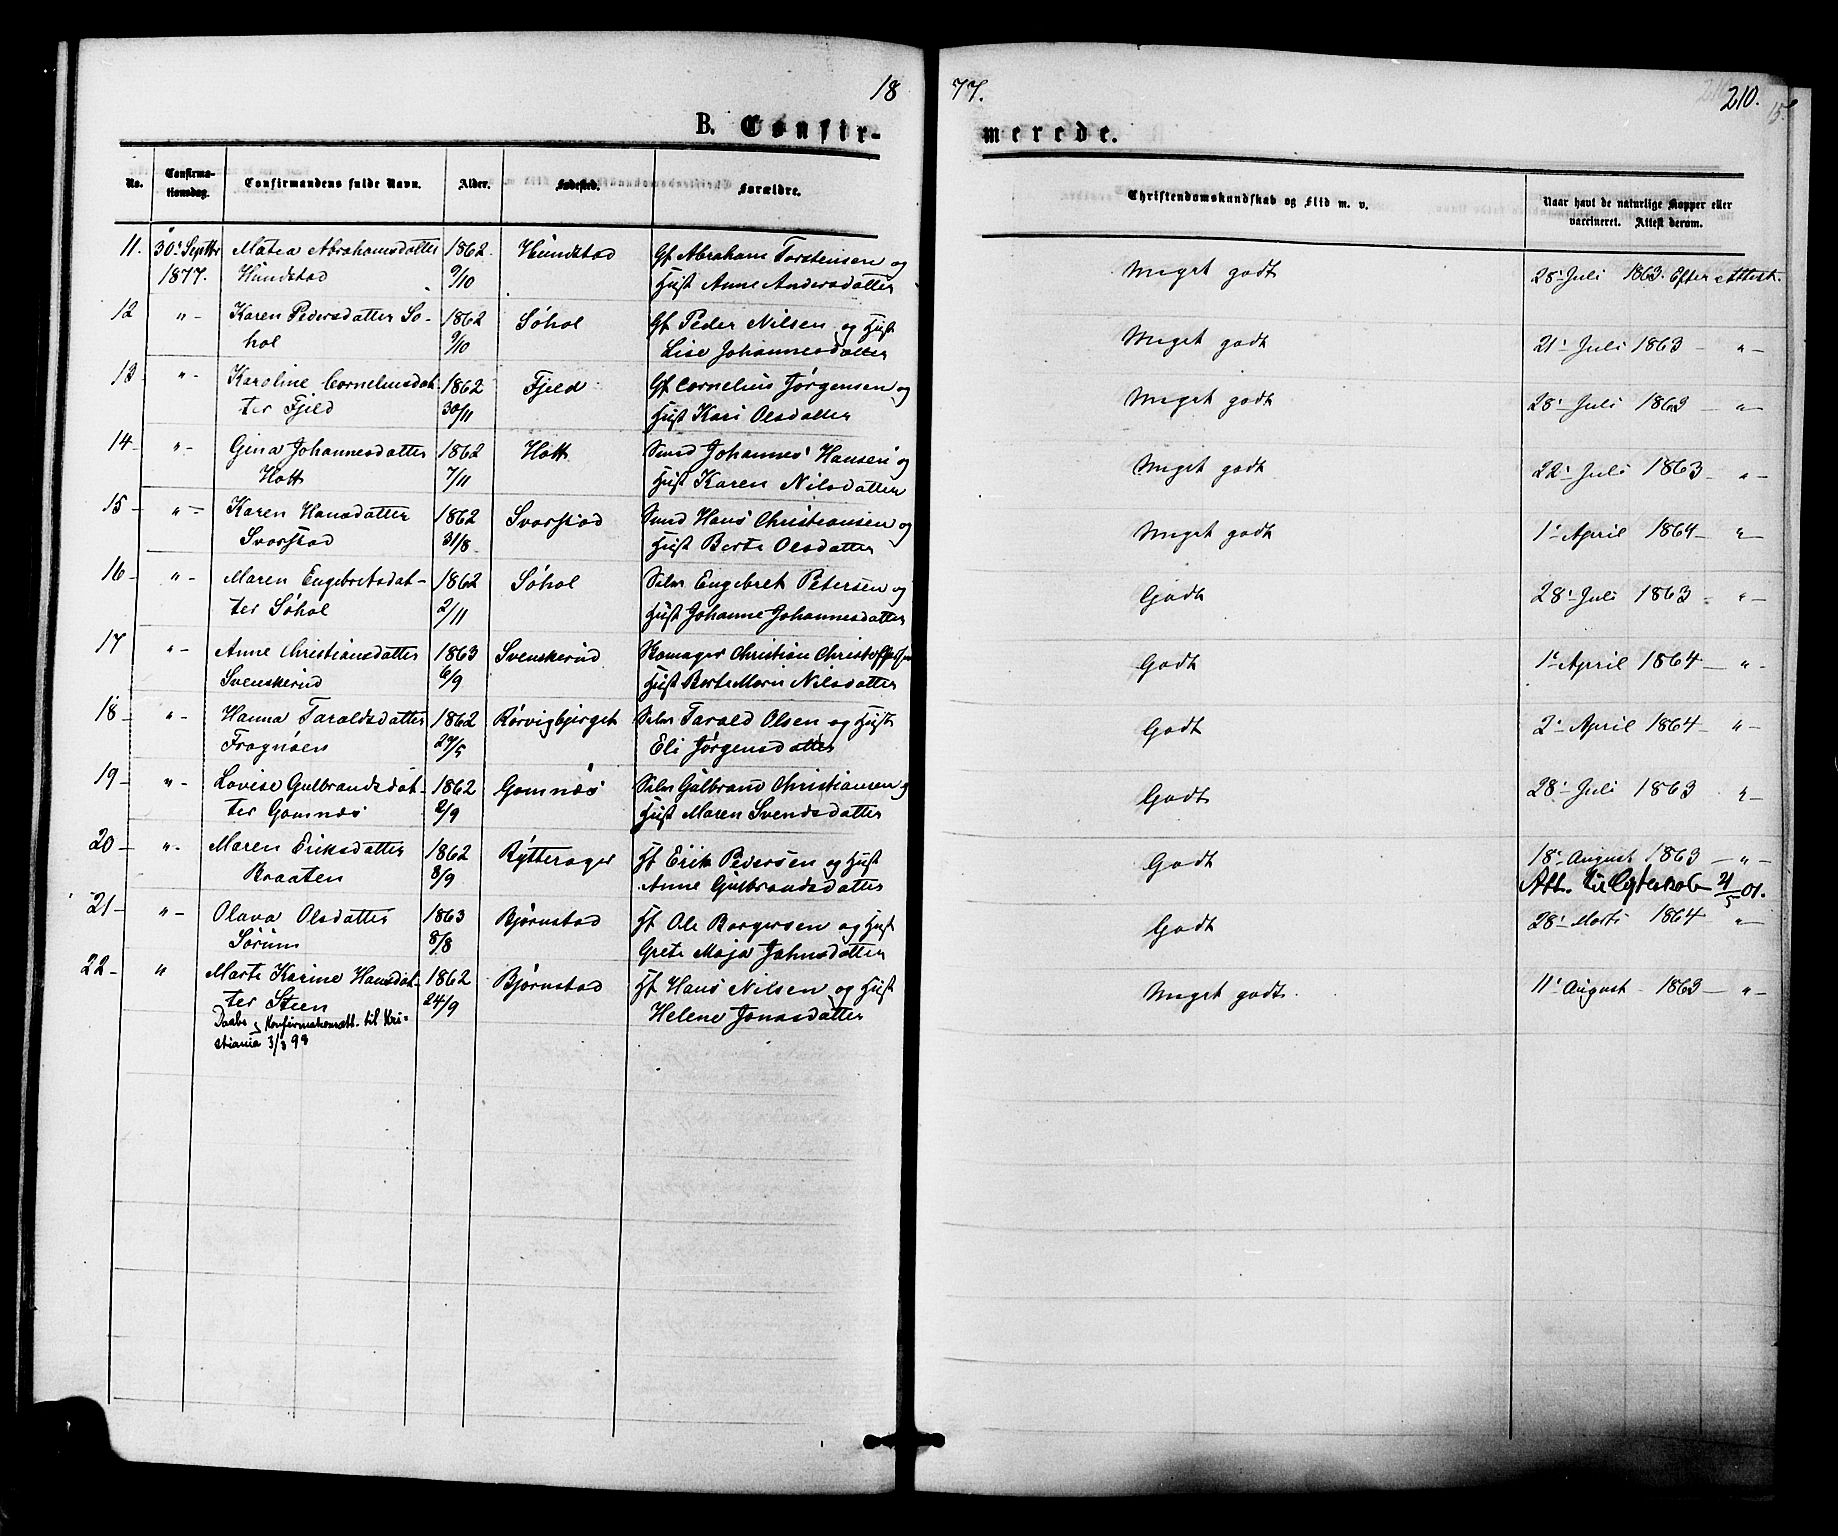 18 77. 210.
B. Confirmerede.
No. Confirmationsdag. Confirmandens fulde Navn. Alder. Fødested. Forældre. Christendomskundskab og Flid m. v. Naar havt de naturlige Kopper eller vaccineret. Attest derom.
11. 30' Septbr Matea Abrahamsdatter 1862 Hundstad Gf Abraham Torstensen og Meget godt 28' Juli 1863. Efter Attest.
1877. Hundstad 9/10 Hust Anne Andersdatter
12 " - Karen Pedersdatter Sø- 1862 Søhol Gf Peder Nilsen og Hust Meget godt 21' Juli 1863 - " -
hol 9/10 Lise Johannesdatter
13 " - Karoline Corneliusdat- 1862 Fjeld Gf Cornelius Jørgensen og Meget godt 28' Juli 1863 - " -
ter Fjeld 30/11 Hust Kari Olsdatter
14 - " - Gina Johannesdatter 1862 Hott Smed Johannes Hansen og Meget godt 22' Juli 1863 - " -
Hott 7/11 Hust Karen Nilsdatter
15 - " - Karen Hansdatter 1862 Svarstad Smed Hans Christiansen og Meget godt 1' April 1864 - " -
Svarstad 31/8. Hust Berte Olsdatter
16 - " - Maren Engebretsdat- 1862 Søhol Selv Engebret Petersen og Godt 28' Juli 1863 - " -
ter Søhol 2/11 Hust Johanne Johannesdatter
17 " - Anne Christiansdatter 1863 Svenskerud Skomager Christian Godt 1' April 1864 - " -
Svenskerud 6/9 Hust Berte Marie Nilsdatter
18 - " - Hanna Taraldsdatter 1862 Rørvigbjerget Selv Tarald Olsen og Hust Godt 2' April 1864 - " -
Frognøen 27/5 Eli Jørgensdatter
19 - " - Lovise Gulbrandsdat- 1862 Gomnæs Selv Gulbrand Christiansen og Godt 28' Juli 1863 " -
ter Gomnæs 2/9 Hust Maren Svendsdatter
20 - " - Maren Eriksdatter 1862 Rytterager Hf Erik Pedersen og Hust Godt 18' August 1863 - " -
Braaten 8/9 Anne Gulbrandsdatter Att. til
21 - " - Olava Olsdatter 1863 Bjørnstad Hf Ole Borgersen og Hust Godt 28' Marts 1864 " -
Sørum 8/8 Grete Maja Jahnsdatter
22 - " Marte Karine Hansdat- 1862 Bjørnstad Hf Hans Nilsen og Hust Meget godt. 11' August 1863 - " -
ter Steen 24/9 Helene Jonasdatter
Daabs og Konfirmationsatt. til Kri-
stiania 3/3 98